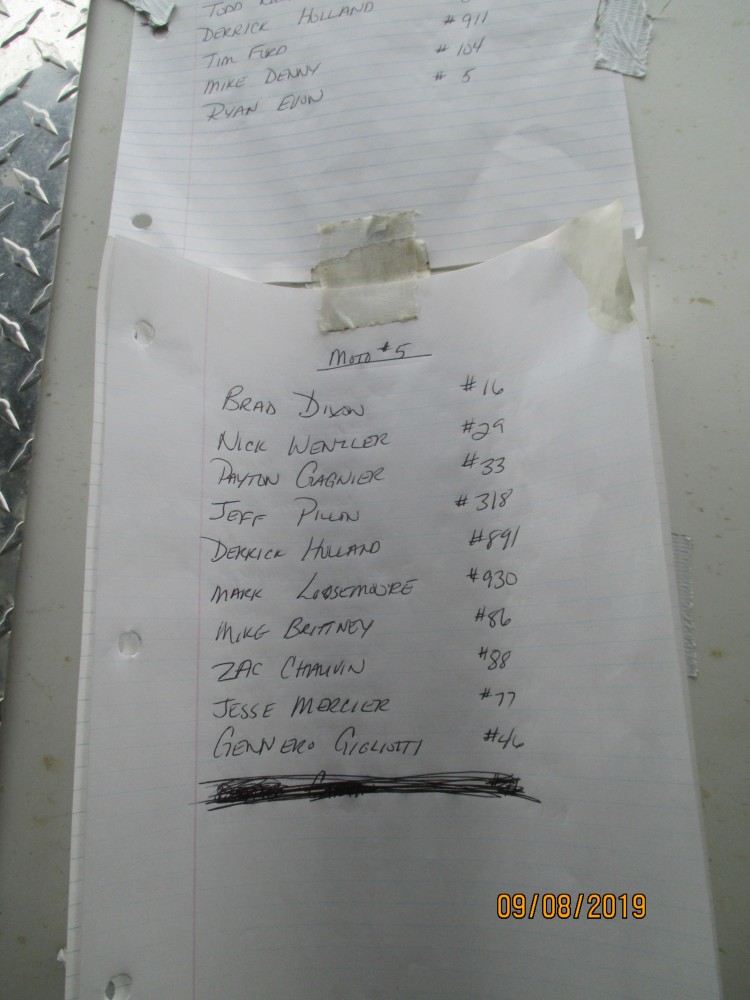 TODD
DERRICK HOLLAND
TIM FORD # 911
MIKE DENNY # 104
RYAN EVON # 5
MOTO #5
BRAD DIXON #16
NICK WENZLER #29
PAYTON GAGNIER #33
JEFF PILLON #318
DERRICK HOLLAND #891
MARK LOOSEMOORE #930
MIKE BRITTNEY #86
ZAC CHAUVIN #88
JESSE MERCIER #77
GENNERO GIGLIOTTI #46
09/08/2019